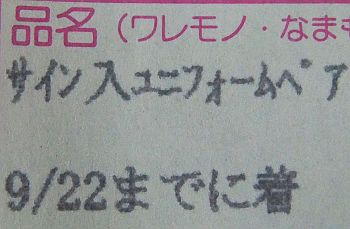 品名（ワレモノ・なまも
サイン入ユニフォームペア
9/22までに着